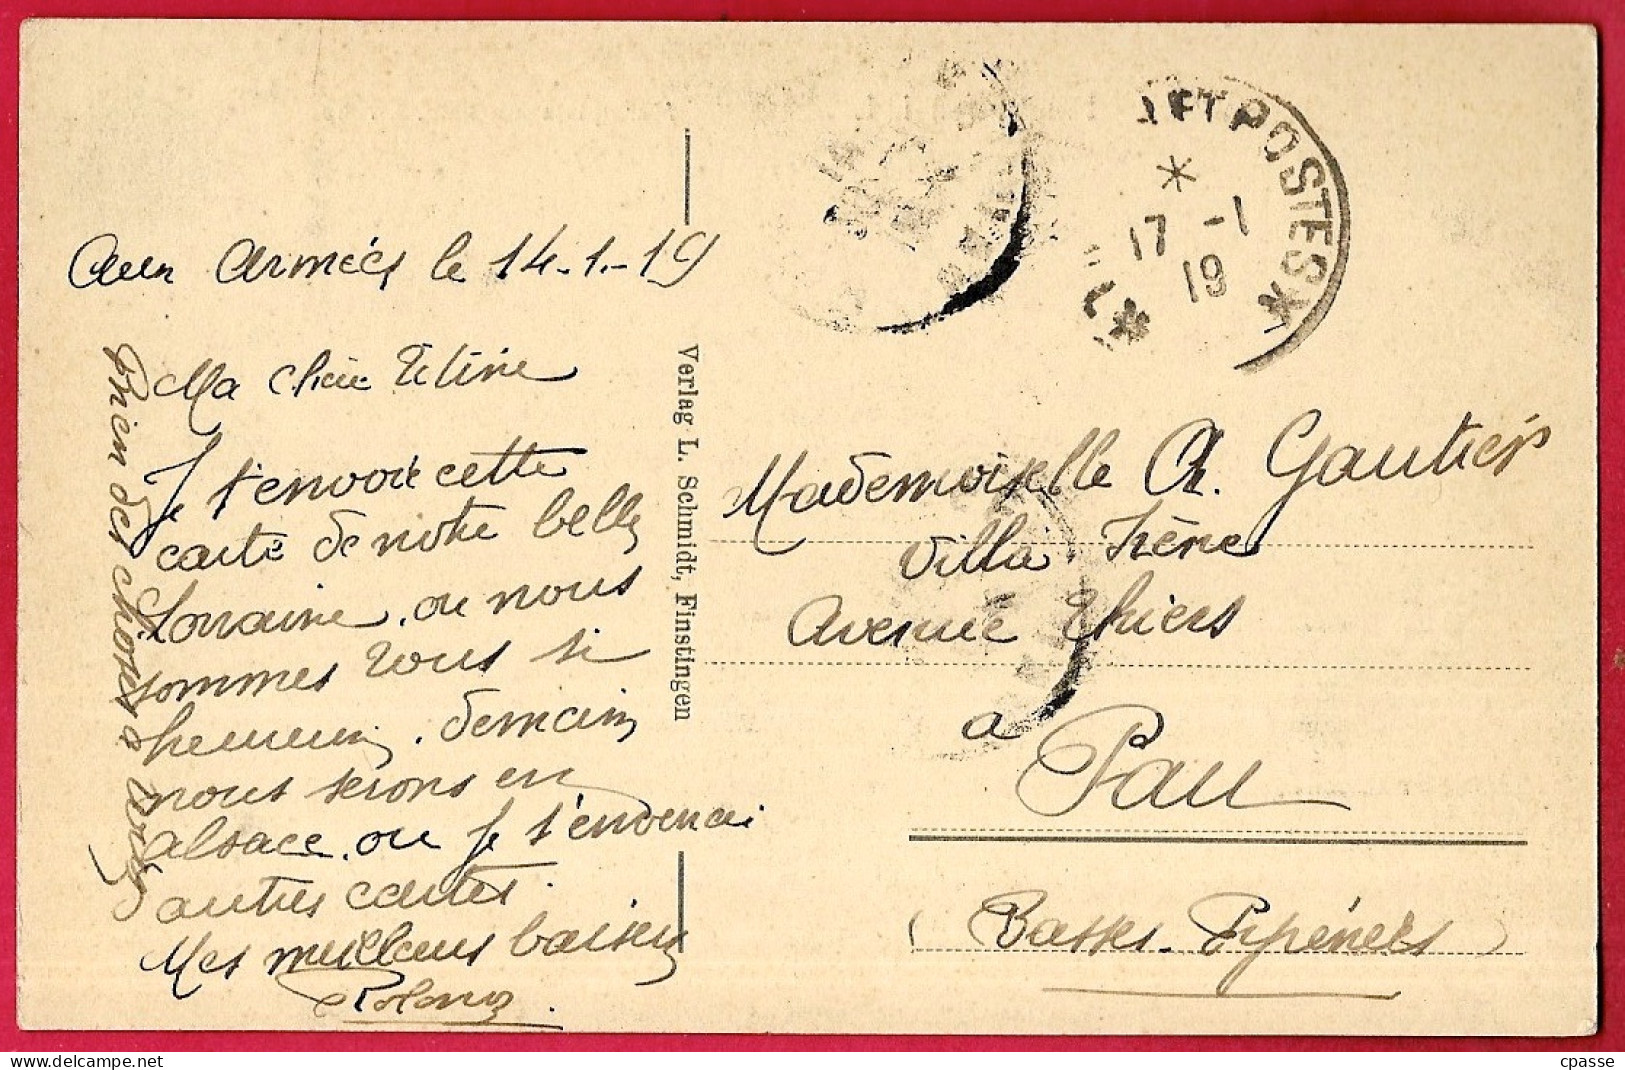 Aux Armées le 14-1-19
Ma chère
Je t'envoie cette
carte de notre belle
Lorraine, ou nous
sommes tous si
heureux, demain
nous serons en
alsace, ou je t'enverrai
d'autres cartes.
Mes meilleurs baisers
Rien des choses a tous
Verlag L. Schmidt, Finstingen
POSTES *
*
17 -1
19
Mademoiselle Ch. Gautier
Villa Irène
Avenue Thiers
a
Pau
(Basses-Pyrénées)
cpasse